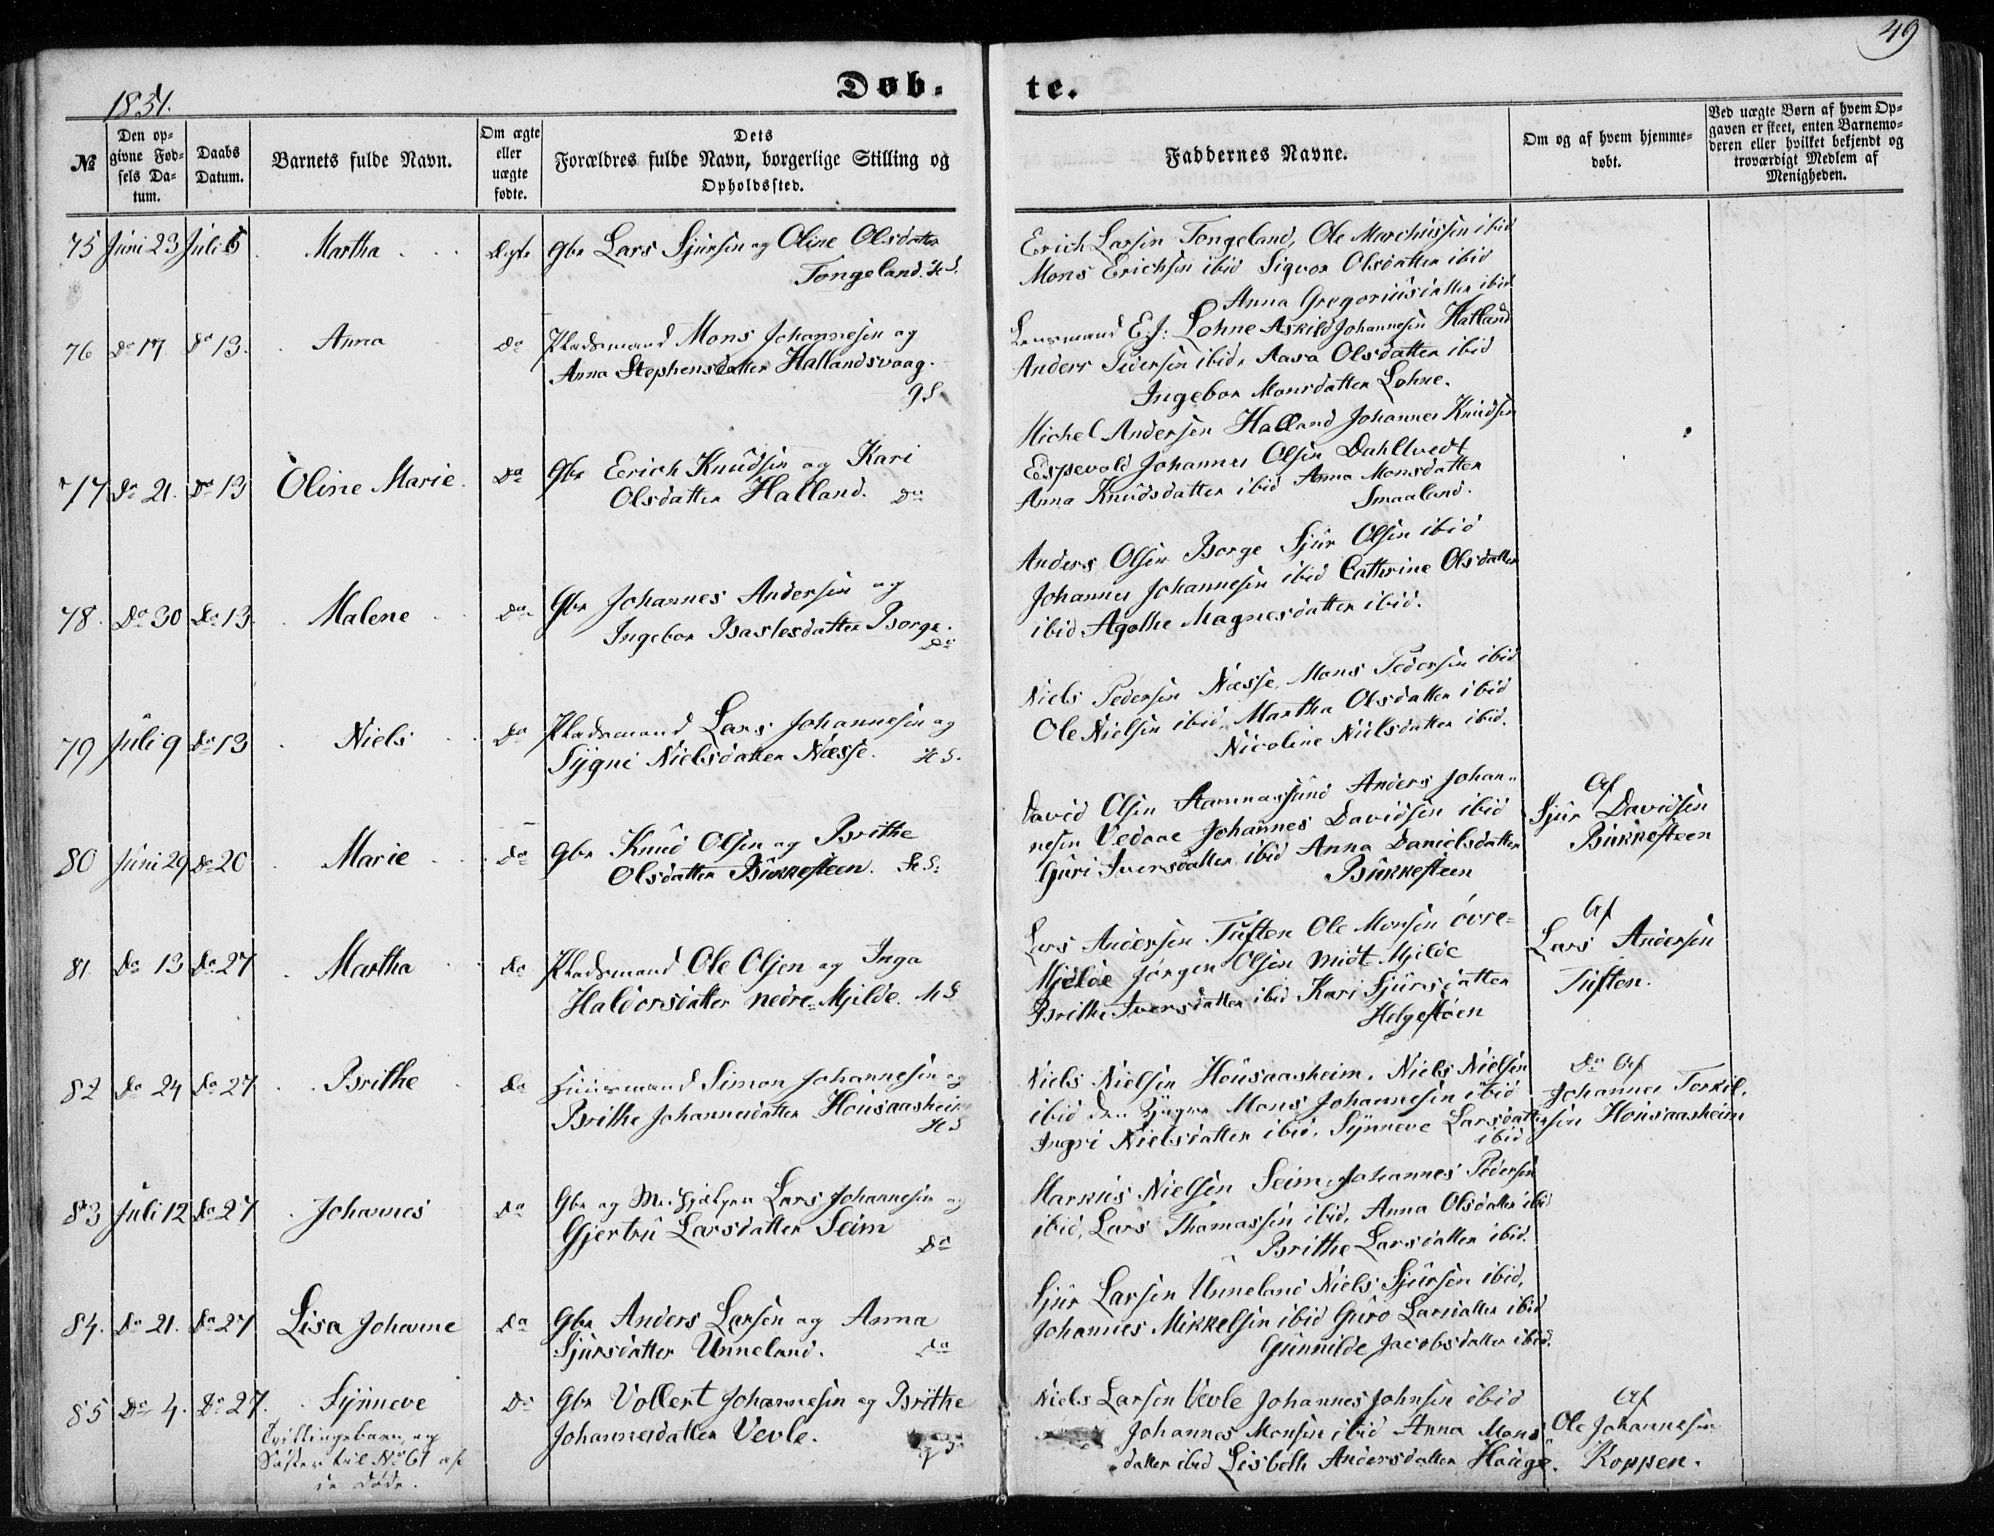 49
1851.
Døb-
te.
№
Den op-
givne Fød-
sels Da-
tum.
Daabs
Datum.
Barnets fulde Navn.
Om ægte
eller
uægte
fødte.
Dets
Forældres fulde Navn, borgerlige Stilling og
Opholdssted.
Faddernes Navne.
Om og af hvem hjemme-
døbt.
Ved uægte Børn af hvem Op-
gaven er skeet, enten Barnemo-
deren eller hvilket bekjendt og
troværdigt Medlem af
Menigheden.
75 Juni 23 Juli 6 Martha Ægte Gbr Lars Sjursen og Oline Olsdatter
Tongeland. H S.
Erich Larsen Tongeland, Ole Marchussen ibid
Mons Erichsen ibid Sigvor Olsdatter ibid
Anna Gregoriusdatter ibid
76 Do 17 Do 13. Anna Do Pladsmand Mons Johannesen og
Anna Stephensdatter Hallandsvaag.
9 S.
Lensmand E. J. Lohne Askild Johannesen Hatland
Anders Pedersen ibid, Aasa Olsdatter ibid
Ingebor Monsdatter Lohne.
77 Do 21. Do 13 Oline Marie. Do Gbr Erich Knudsen og Kari
Olsdatter Halland. Do
Michel Andersen Halland Johannes Knudsen
Espevold Johannes Olsen Dahltvedt
Anna Knudsdatter ibid Anna Monsdatter
Smaaland.
78. Do 30 Do 13. Malene Do Gbr Johannes Andersen og
Ingebor Baslesdatter Borge.
Do
Anders Olsen Borge Sjur Olsen ibid
Johannes Johannesen ibid Cathrine Olsdatter
ibid Agathe Magnesdatter ibid.
79 Juli 9 Do 13 Niels Do Pladsmand Lars Johannesen og
Sygni Nielsdatter Næsse. H S.
Niels Pedersen Næsse, Mons Pedersen ibid
Ole Nielsen ibid, Martha Olsdatter ibid
Nicoline Nielsdatter ibid.
80 Juni 29 Do 20 Marie Do Gbr Knud Olsen og Brithe
Olsdatter Bukkesteen. H S.
David Olsen Hamnassund Anders Johan-
nesen Vedaae Johannes Davidsen ibid
Guri Iversdatter ibid Anna Danielsdatter
Bukkesteen
Af
Sjur Davidsen
Bukkesteen
81. Do 13 Do 27 Martha Do Pladsmand Ole Olsen og Inga
Haldorsdatter nedre Mjelde. H S
Lars Andersen Tuften Ole Monsen øvre-
Mjelde Jørgen Olsen midt-Mjelde
Brithe Iversdatter ibid Kari Sjursdatter
Helgestøen
Af
Lars Andersen
Tuften.
82 Do 24 Do 27 Brithe Do Huusmand Simon Johannesen og
Brithe Johannesdatter Housaasheim
H S
Niels Nielsen Housaasheim. Niels Nielsen
ibid den Yngre Mons Johannesen ibid
Ingri Nielsdatter ibid, Synneve Larsdatter
ibid
Do Af
Johannes Torkil-
sen Housaasheim
83 Juli 12 Do 27 Johannes Do Gbr og Medhjælper Lars Johannesen og
Gjertru Larsdatter Seim
Do
Markus Nielsen Seim, Johannes Pedersen
ibid, Lars Thomassen ibid, Anna Olsdatter ibid
Brithe Larsdatter ibid.
84. Do 21. Do 27 Lisa Johanne Do Gbr Anders Larsen og Anna
Sjursdatter Unneland. Do
Sjur Larsen Unneland Niels Sjursen ibid,
Johannes Mikkelsen ibid Guro Larsdatter ibid
Gunnilde Jacobsdatter ibid.
85 Do 4. Do 27. Synneve Do Gbr Vollert Johannesen og Brithe
Johannesdatter Vevle.
Tvillingebarn, og
Søster til No 61 af
de Døde.
Niels Larsen Vevle Johannes Johnsen ibid
Johannes Monsen ibid Anna Mons-
datter ibid Lisbeth Andersdatter Hauge.
Af
Ole Johannesen
Koppen.